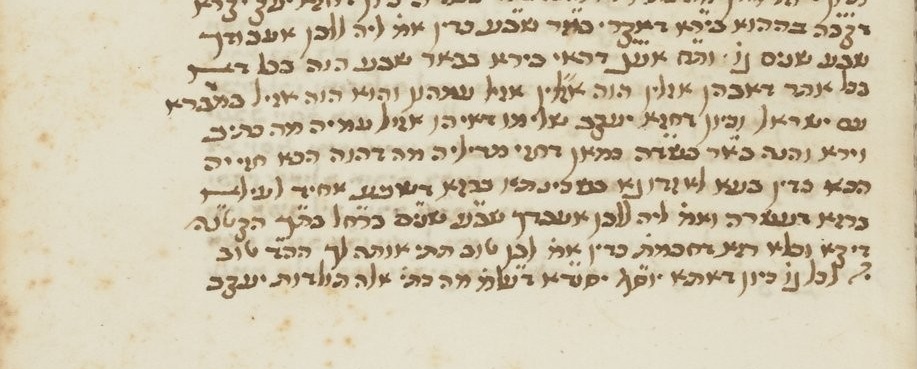 בההוא בירא דאקרי באר שבע כדין אמ' ליה ללבן אעבודך
שבע שנים כו' ות"ח אע"ג דהאי בירא כבאר שבע הוה בכל
בכל אתר דאבהן אזלין הוה אזיל עמהון והוא הוה אזיל במדברא
עם ישראל וכיון דחזא יעקב שלימו דאיהו אזיל עמיה מה כתיב
וירא והנה באר בשדה כמאן דחזי מדיליה מה דהוה הכא חזייה
הכא כדין בעא לאזדווגא בשכינתא ברזא דשבע אחיד לעילא
ברזא דעשרה ואמ' ליה ללבן אעבדך שבע שנים ברחל בתך הקטנה
דיקא וכלא רזא דחכמת' כדין אמ' לבן טוב תתי אותה לך טוב
לכל כו' כיון דאתא יוסף יסודא דעלמ' מה כתי' אלה תולדות יעקב